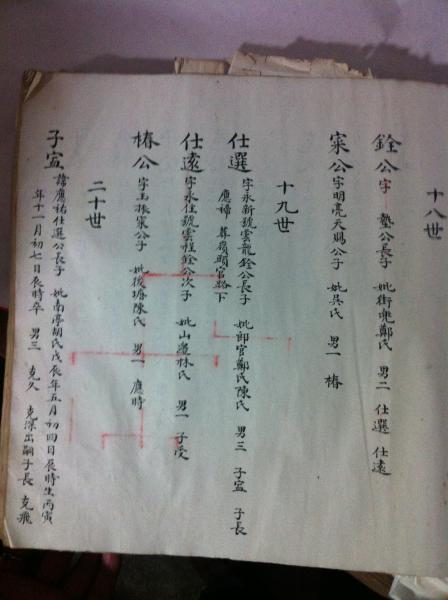 十八世
銓公字 塾公長子 妣街兜鄭氏 男二 仕選 仕遠
寀公字明亮天賜公子 妣吳氏 男一 椿
十九世
仕選字永新號雲龍銓公長子 妣郎官鄭氏陳氏 男三 子宜 子長
應禘 葬嶺頭官路下
仕遠字永住號雲程銓公次子 妣山邊林氏 男一 子受
椿公字玉振寀公子 妣後塘陳氏 男一 應時
二十世
子宜諱應祐仕選公長子 妣南亭胡氏戊辰年五月初四日辰時生丙寅
年十一月初七日辰時卒 男三 克久 克深出嗣子長 克飛